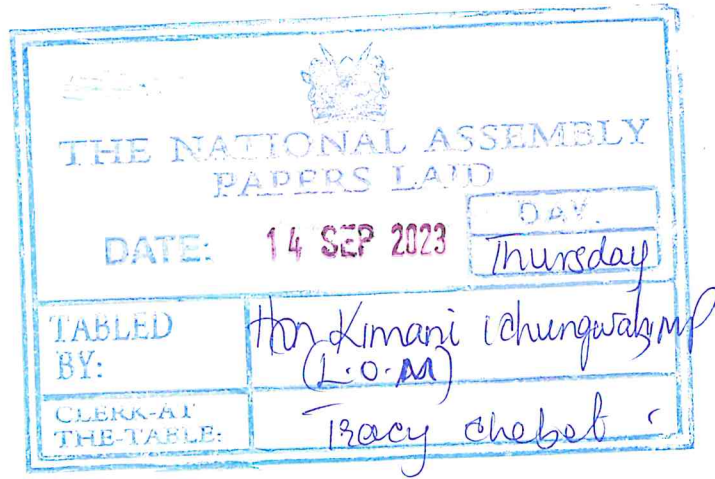 THE NATIONAL ASSEMBLY
PAPERS LAID
DATE: 14 SEP 2023
DAY.
Thursday
TABLED BY:
Hon Kimani Ichungwah, MP
(L.O.M)
CLERK-AT THE-TABLE:
Tracy Chebet